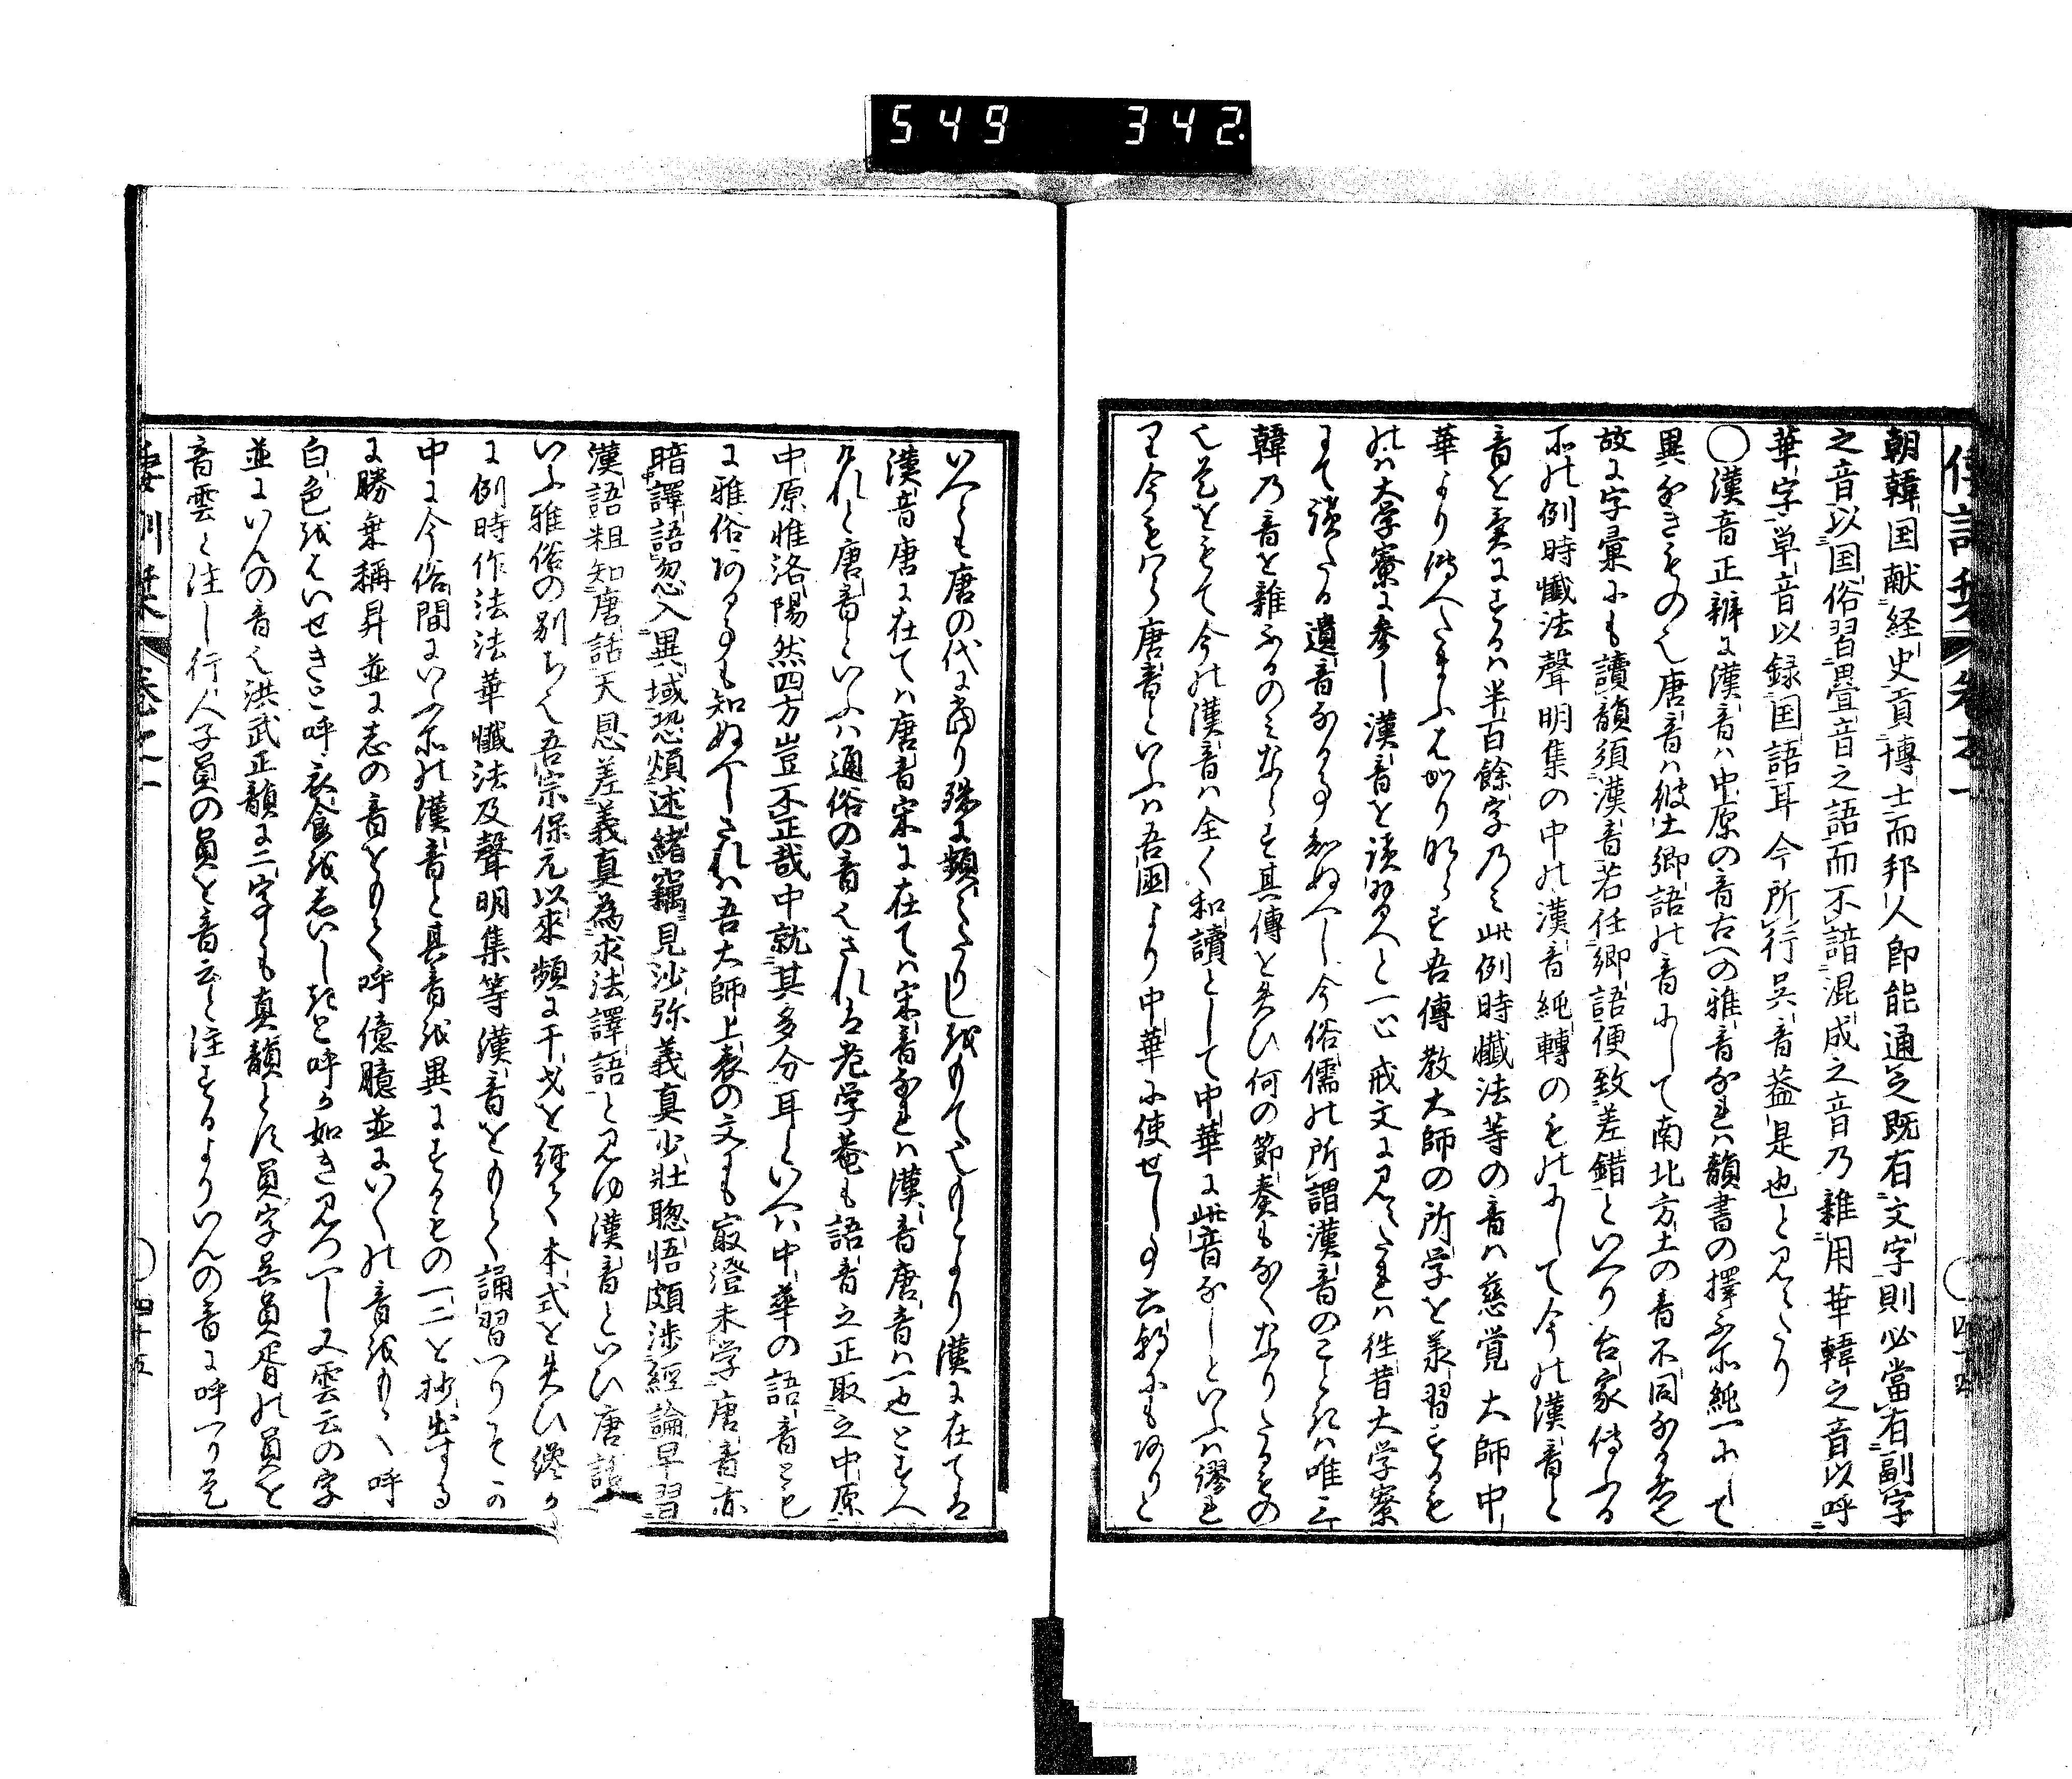 549 342.
朝韓国献経史貢博士而邦人即能通之既有文字則必當有副字
之音以国俗習畳音之語而不諳混成之音乃雜用華韓之音以呼
華字単音以録国語耳今所行呉音葢是也と見えたり
〇漢音正辨に漢音ハ中原の音古への雅音なれハ韻書の擇ふ所純一にして
異なきもの也唐音ハ彼土郷語の音にして南北方土の音不同なる者也
故に字彙にも讀韻須漢音若任郷語便致差錯といへり台家傳ふる
所の例時懺法聲明集の中の漢音純轉のものにして今の漢音と
音を異にするハ半百餘字乃ミ此例時懺法等の音ハ慈覚大師中
華より傳へたまふはかりならす吾傳教大師の所学を羕習するも
のハ大学寮に参し漢音を讀習へと一心戒文に見えたれハ徃昔大学寮
にて讀たる遺音なる事知ぬへし今俗儒の所謂漢音のことキハ唯三
韓乃音を雜ふるのミならす其傳を失ひ何の節奏もなくなりたるもの
也是をもて今の漢音ハ全く和讀として中華に此音なしといふハ謬れ
り今もハら唐音といふハ吾國より中華に使せし事六朝にもありと
いへとも唐の代に當り殊に頻くたりしをもて也もとより漢に在てハ
漢音唐に在てハ唐音宋に在てハ宋音なれハ漢音唐音ハ一也とすへ
けれと唐音といふハ通俗の音也されは老学菴も語音之正取之中原
中原惟洛陽然四方豈不正哉中就其多分耳といへハ中華の語音とも
に雅俗ある事も知ぬへしされハ吾大師上表の文も㝡澄未学唐音亦
暗譯語忽入異域恐煩述緒竊見沙弥義真少壮聡悟頗渉經論早習
漢語粗知唐話天恩差義真為求法譯語と見ゆ漢音といひ唐話と
いふ雅俗の別ちハ吾宗保元以來頻に干戈を經て本式を失ひ纔か
に例時作法法華懺法及聲明集等漢音をもて誦習へりそか
中に今俗間にいふ所の漢音と其音を異にするもの一二を抄出する
に勝乗稱昇並に志の音をもて呼億臆並にいくの音をもて呼
白色をはいせきと呼衣食を志いしきと呼か如き見つへし又雲云の字
並にいんの音也洪武正韻に二字も真韻とす員字呉員胥の員を
音雲と注し行人子員の員を音云と注するよりいんの音に呼へり是